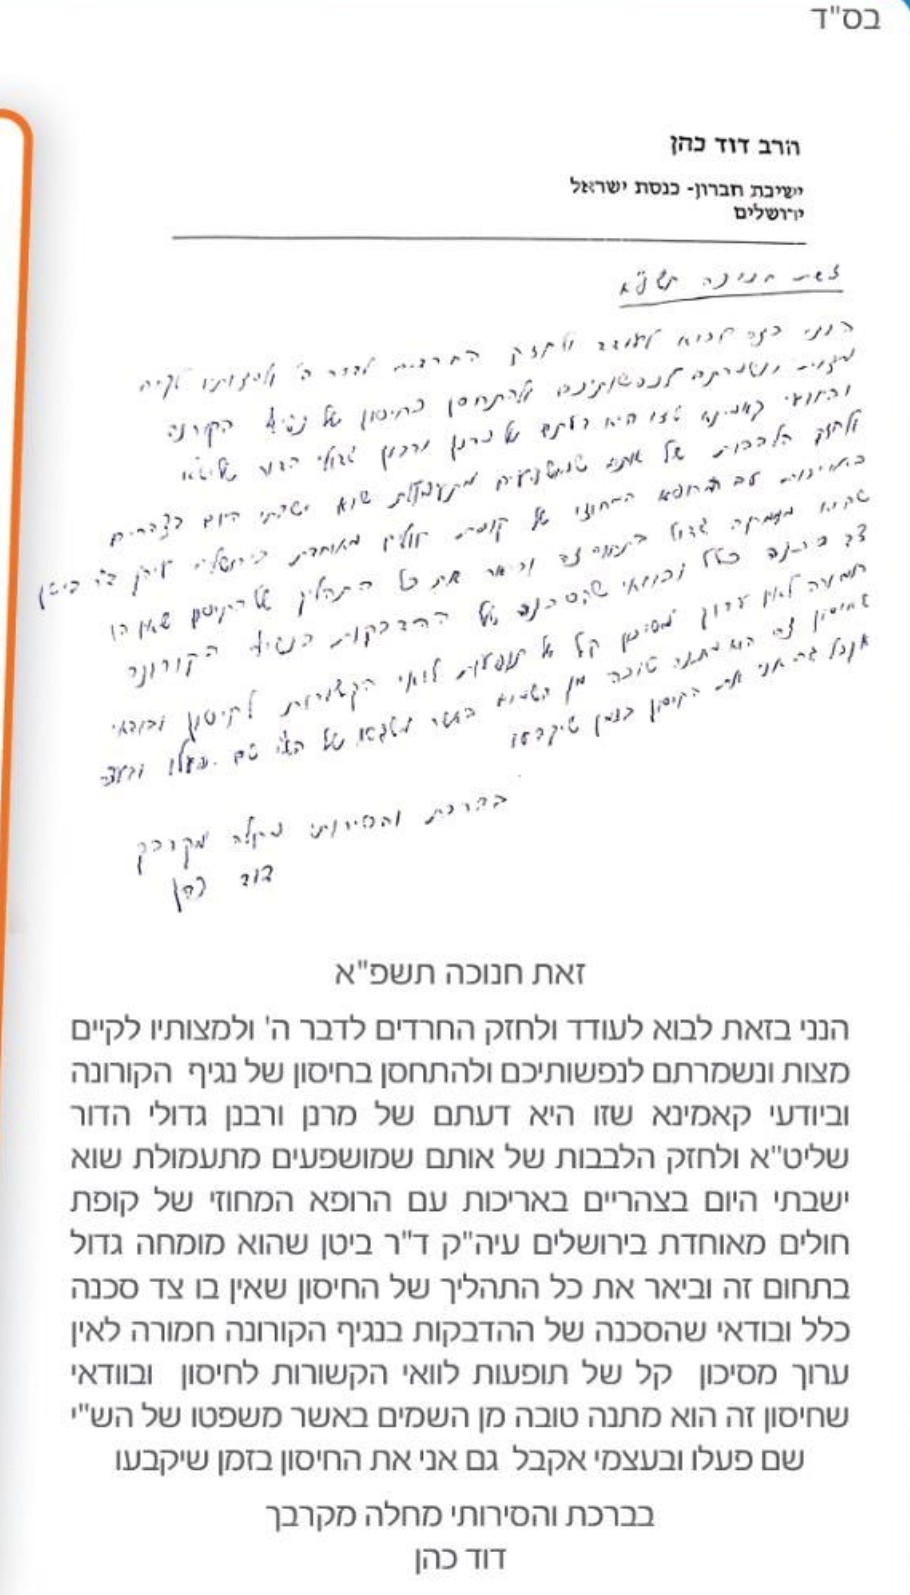 בס"ד
הרב דוד כהן
ישיבת חברון- כנסת ישראל
ירושלים
זאת חנוכה תשפ"א
הנני בזה לבוא לעודד ולחזק החרדים לדבר ה' ולמצותיו לקיים
מצות ונשמרתם לנפשותיכם ולהתחסן בחיסון של נגיף הקורונה
וביודעי קאמינא שזו היא דעתם של מרנן ורבנן גדולי הדור שליט"א
ולחזק הלבבות של אותם שמושפעים מתעמולת שוא ישבתי היום בצהריים
באריכות עם הרופא המחוזי של קופת חולים מאוחדת בירושלים עיה"ק ד"ר ביטן
שהוא מומחה גדול בתחום זה וביאר את כל התהליך של החיסון שאין בו
צד סכנה כלל ובודאי שהסכנה של ההדבקות בנגיף הקורונה
חמורה לאין ערוך מסיכון קל של תופעות לוואי הקשורות לחיסון ובודאי
שחיסון זה הוא מתנה טובה מן השמים באשר משפטו של הש"י שם פעלו ובעצמי
אקבל גם אני את החיסון בזמן שיקבעו
בברכת והסירותי מחלה מקרבך
דוד כהן
זאת חנוכה תשפ"א
הנני בזאת לבוא לעודד ולחזק החרדים לדבר ה' ולמצותיו לקיים
מצות ונשמרתם לנפשותיכם ולהתחסן בחיסון של נגיף הקורונה
וביודעי קאמינא שזו היא דעתם של מרנן ורבנן גדולי הדור
שליט"א ולחזק הלבבות של אותם שמושפעים מתעמולת שוא
ישבתי היום בצהריים באריכות עם הרופא המחוזי של קופת
חולים מאוחדת בירושלים עיה"ק ד"ר ביטן שהוא מומחה גדול
בתחום זה וביאר את כל התהליך של החיסון שאין בו צד סכנה
כלל ובודאי שהסכנה של ההדבקות בנגיף הקורונה חמורה לאין
ערוך מסיכון קל של תופעות לוואי הקשורות לחיסון ובוודאי
שחיסון זה הוא מתנה טובה מן השמים באשר משפטו של הש"י
שם פעלו ובעצמי אקבל גם אני את החיסון בזמן שיקבעו
בברכת והסירותי מחלה מקרבך
דוד כהן